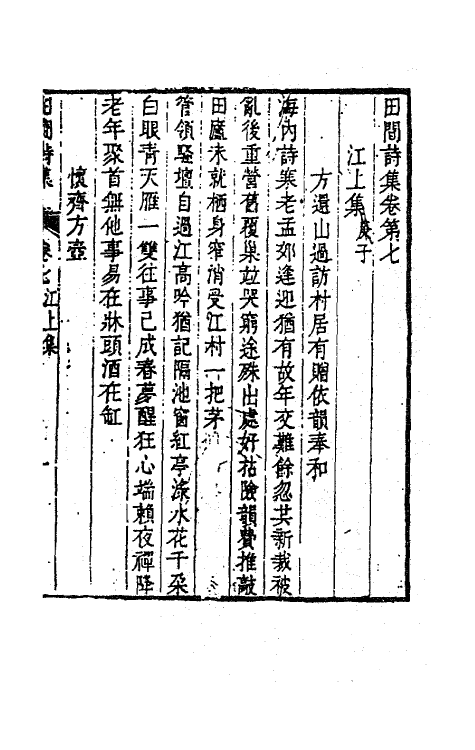 田間詩集卷第七
江上集庚子
方還山過訪村居有贈依韻奉和
海內詩寒老孟郊逢迎猶有故年交難餘忽共新裁被
亂後重營舊覆巢竝哭窮途殊出處好拈險韻費推敲
田廬未就栖身窄消受江村一把茅
管領騷壇自過江高吟猶記隔池窗紅亭淥水花千朵
白眼青天雁一雙往事已成春夢醒狂心端賴夜禪降
老年聚首無他事易在牀頭酒在缸
懷齊方壺
田間詩集 卷七江上集 一